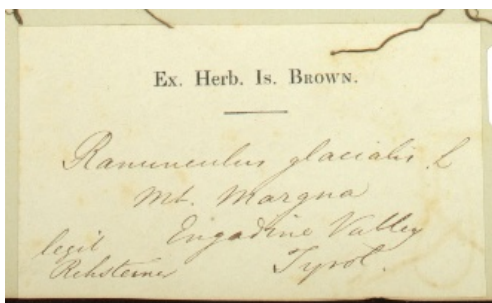 Ex. Herb. Is. Brown.
Ranunculus glacialis L
Mt. Margna
Engadine Valley
Tyrol.
legit
Rehsteiner